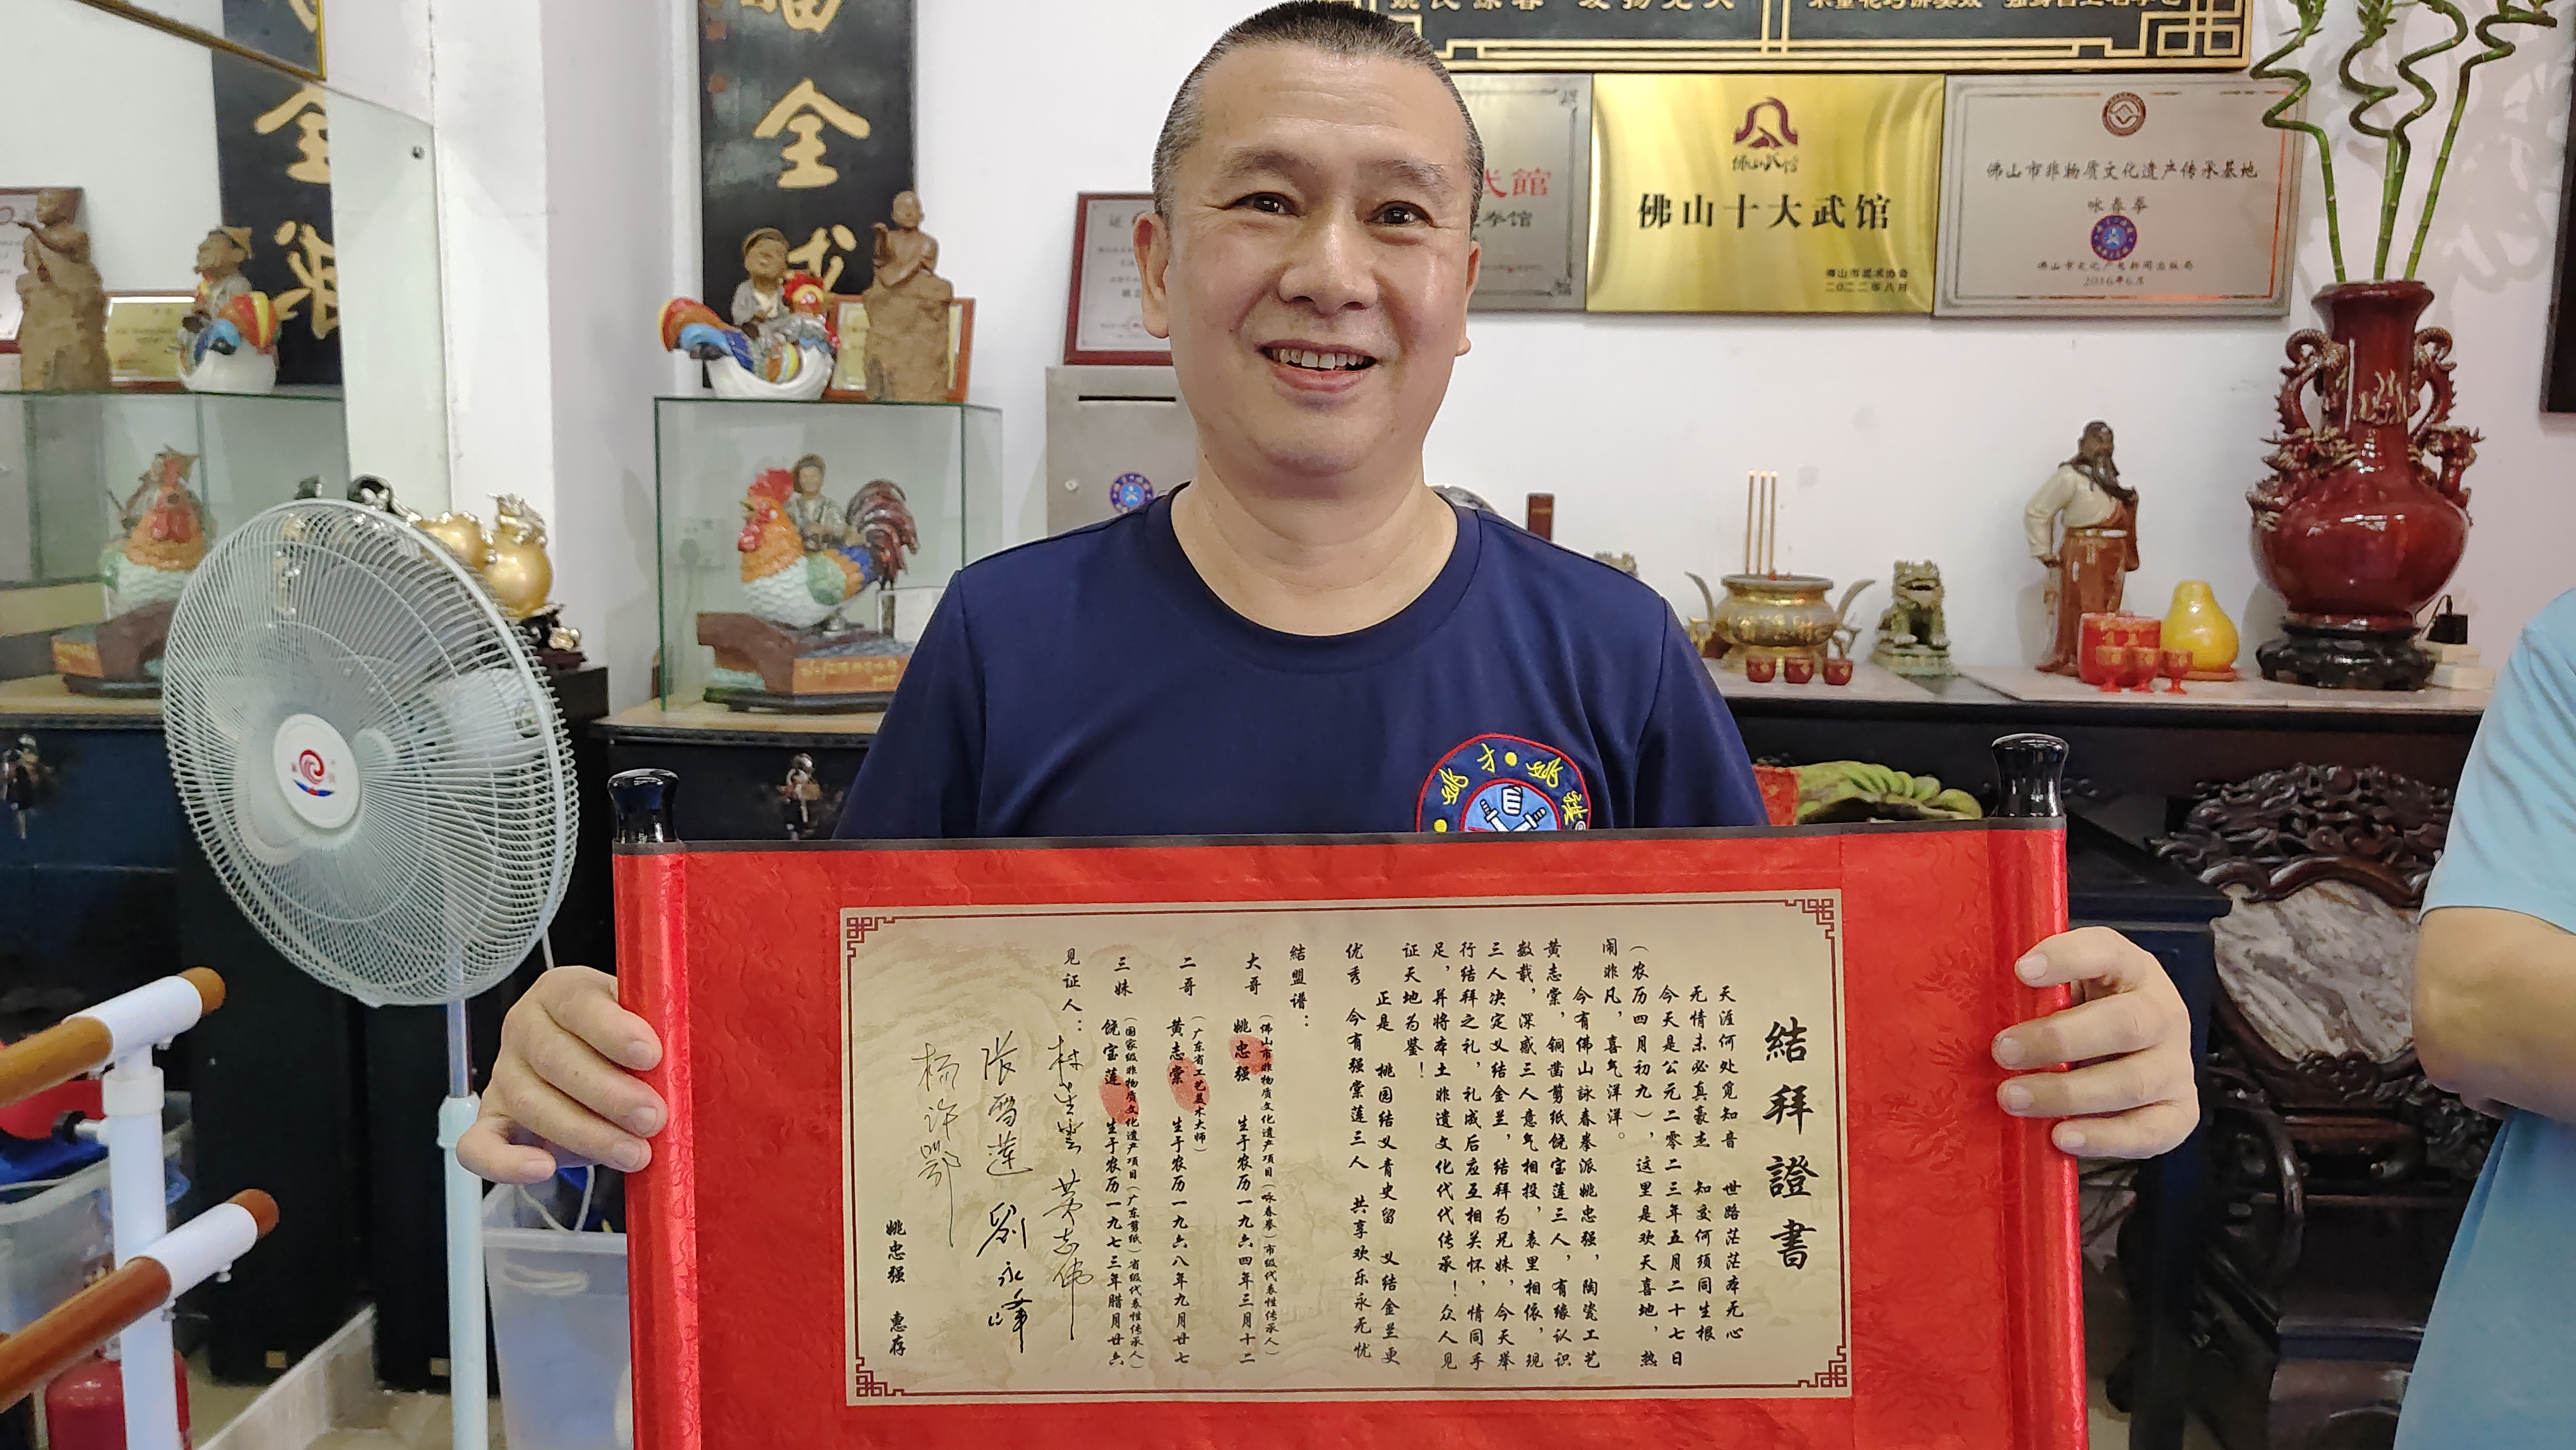 福全
佛山武馆
佛山十大武馆
佛山市武术协会
二〇二二年八月
佛山市非物质文化遗产传承基地
咏春拳
佛山市文化广电新闻出版局
2016年6月
武館
拳馆
证
姚才姚
結拜證書
天涯何处觅知音 世路茫茫本无心
无情未必真豪杰 知交何须同生根
今天是公元二零二三年五月二十七日
（农历四月初九），这里是欢天喜地，热
闹非凡，喜气洋洋。
今有佛山詠春拳派姚忠强，陶瓷工艺
黄志棠，铜凿剪纸饶宝莲三人，有缘认识
数载，深感三人意气相投，表里相依，现
三人决定义结金兰，结拜为兄妹，今天举
行结拜之礼，礼成后应互相关怀，情同手
足，并将本土非遗文化代代传承！众人见
证天地为鉴！
正是 桃园结义青史留 义结金兰更
优秀 今有强棠莲三人 共享欢乐永无忧
結盟谱：
（佛山市非物质文化遗产项目（咏春拳）市级代表性传承人）
大哥 姚忠强 生于农历一九六四年三月十二
（广东省工艺美术大师）
二哥 黄志棠 生于农历一九六八年九月廿七
（国家级非物质文化遗产项目（广东剪纸）省级代表性传承人）
三妹 饶宝莲 生于农历一九七三年腊月廿六
见证人：
黄志伟
劉永峰
姚忠强 惠存